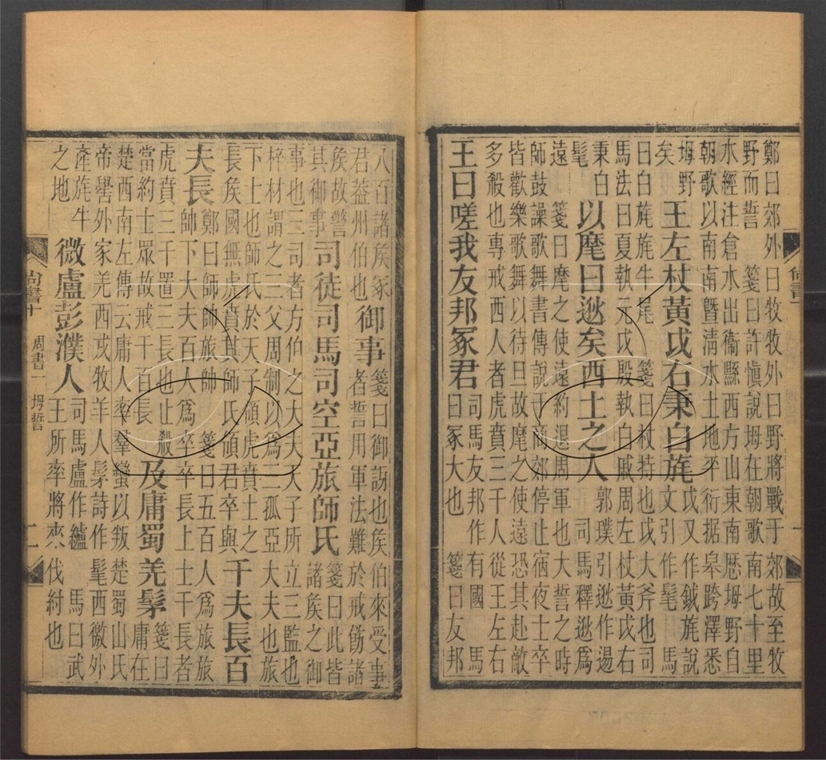 鄭曰郊外曰牧牧外曰野將戰于郊故至牧
野而誓　箋曰許慎說坶在朝歌南七十里
水經注倉水出衞縣西方山東南歷坶野自
朝歌以南南曁淸水土地平衍據皋跨澤悉
坶野
矣　王左杖黃戉右秉白旄戉又作鉞旄說文引作髦　馬
曰白旄旄牛尾　箋曰杖持也戉大斧也司
馬法曰夏執玄戉殷執白戚周左杖黃戉右
秉白
髦　以麾曰逖矣西土之人郭璞引逖作逷　司馬釋逖爲
遠　箋曰麾之使遠約退周軍也大誓之時
師鼓譟歌舞書傳說于商郊停止宿夜士卒
皆歡樂歌舞以待旦故麾之使遠恐其赴敵
多殺也專戒西人者虎賁三千人從王左右
王曰嗟我友邦冢君司馬友邦作有國　馬曰冢大也　箋曰友邦
八百諸矦冢
君益州伯也御事箋曰御訝也矦伯來受事者誓用軍法難於戒飭諸
矦故警
其御事司徒司馬司空亞旅師氏箋曰此皆諸矦之御
事也三司者方伯之大夫天子所立三監也
梓材謂之三父周制以爲三孤亞大夫也旅
下士也師氏於天子領虎賁士之
長矦國無虎賁其師氏領君卒與千夫長百
夫長鄭曰師帥旅帥　箋曰五百人爲旅旅帥下大夫百人爲卒卒長上士千長者
虎賁三千置三長也止殺
當約士眾故戒千百長及庸蜀羌髳箋曰庸在
楚西南左傳云庸人率羣蠻以叛楚蜀山氏
帝嚳外家羌西戎牧羊人髳詩作髦西徼外
產旄牛
之地　微盧彭濮人司馬盧作纑　馬曰武王所率將來伐紂也
尙書十　周書一　坶誓　二